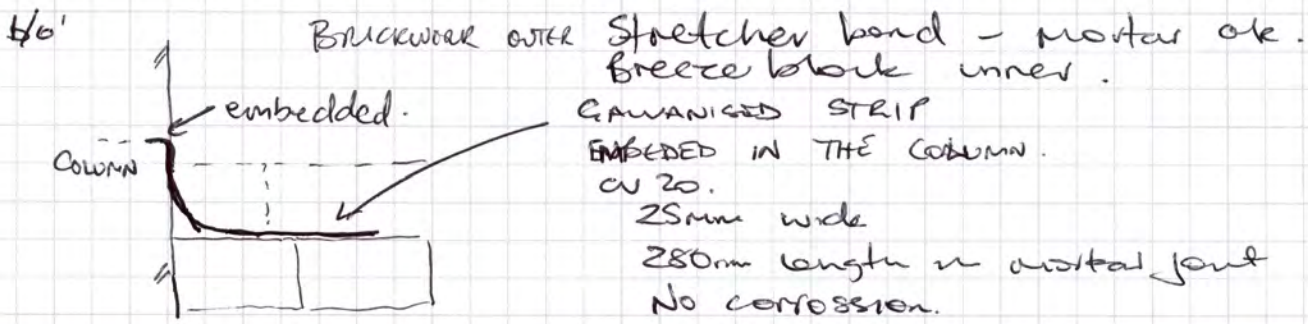 b/o' BRICKWORK OUTER Stretcher bond - Mortar ok.
Breeze block inner.
embedded.
GALVANISED STRIP
EMBEDED IN THE COLUMN.
COLUMN
20.
25mm wide
280mm length in mortar joint
No corrossion.